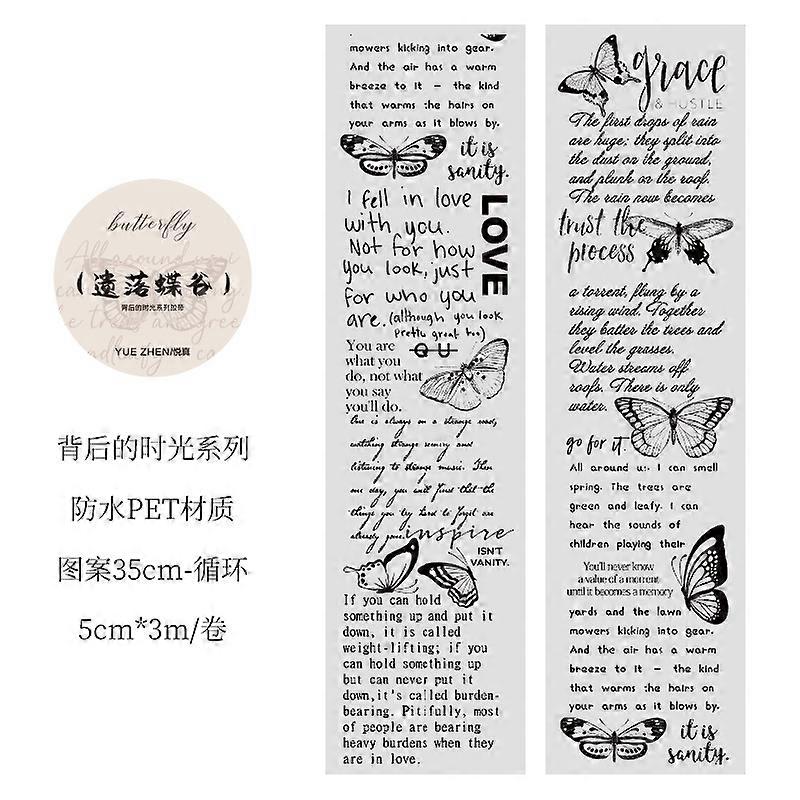 butterfly
(遗落蝶谷)
背后的时光系列胶带
YUE ZHEN/悦真
背后的时光系列
防水PET材质
图案35cm-循环
5cm*3m/卷
mowers kicking into gear.
And the air has a warm
breeze to it – the kind
that warms the hairs on
your arms as it blows by.
it is
sanity.
I fell in love
with you.
Not for how
you look, just
for who you
are. (although you look
pretty great too)
LOVE
You are
what you
do, not what
you say
you'll do.
QU
One is always on a strange road,
watching strange scenery and
listening to strange music. Then
one day, you will find that the
things you try hard to forget are
already gone.
inspire
ISN'T
VANITY.
If you can hold
something up and put it
down, it is called
weight-lifting; if you
can hold something up
but can never put it
down,it's called burden-
bearing. Pitifully, most
of people are bearing
heavy burdens when they
are in love.
grace
& HUSTLE
The first drops of rain
are huge; they split into
the dust on the ground,
and plunk on the roof.
The rain now becomes
trust the
process
a torrent, flung by a
rising wind. Together
they batter the trees and
level the grasses.
Water streams off
roofs. There is only
water.
go for it.
All around us I can smell
spring. The trees are
green and leafy. I can
hear the sounds of
children playing their
You'll never know
a value of a moment
until it becomes a memory
yards and the lawn
mowers kicking into gear.
And the air has a warm
breeze to it – the kind
that warms the hairs on
your arms as it blows by.
it is
sanity.